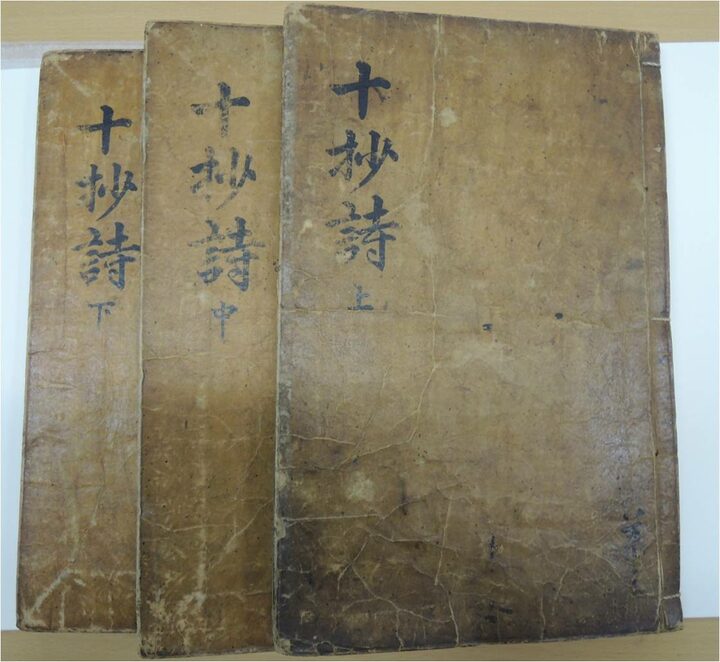 十抄詩 上
十抄詩 中
十抄詩 下